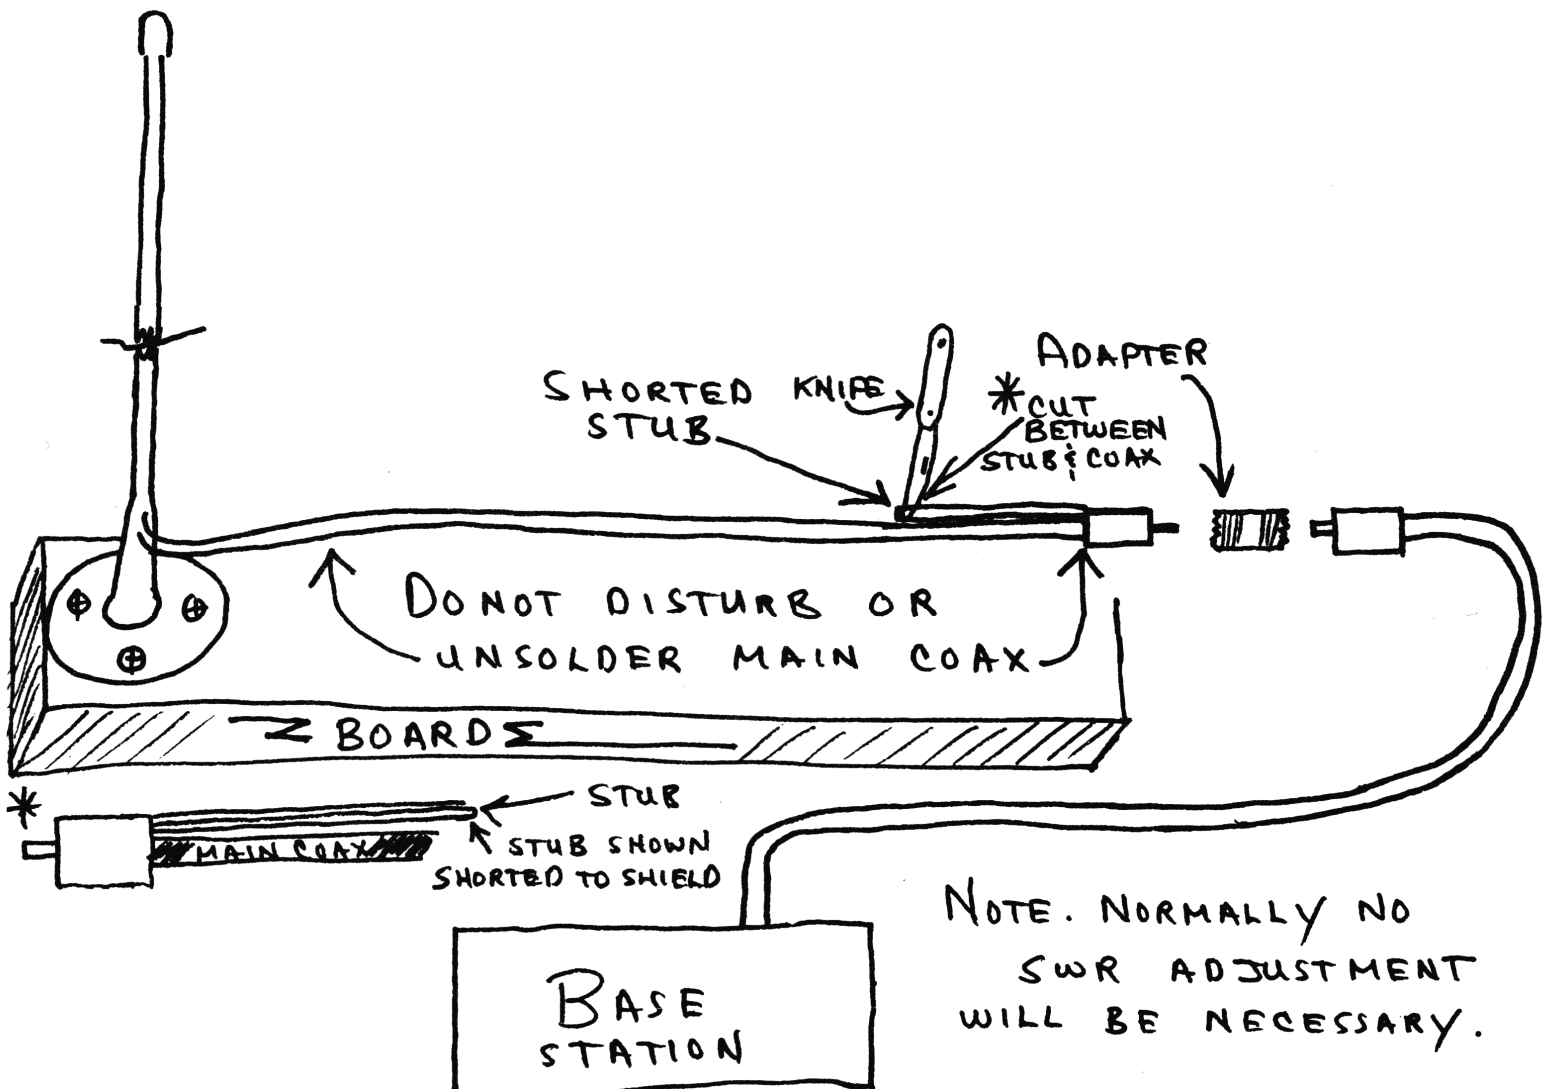 SHORTED
STUB
KNIFE
* CUT
BETWEEN
STUB & COAX
ADAPTER
DO NOT DISTURB OR
UNSOLDER MAIN COAX
BOARD
*
STUB
STUB SHOWN
SHORTED TO SHIELD
MAIN COAX
BASE
STATION
NOTE. NORMALLY NO
SWR ADJUSTMENT
WILL BE NECESSARY.